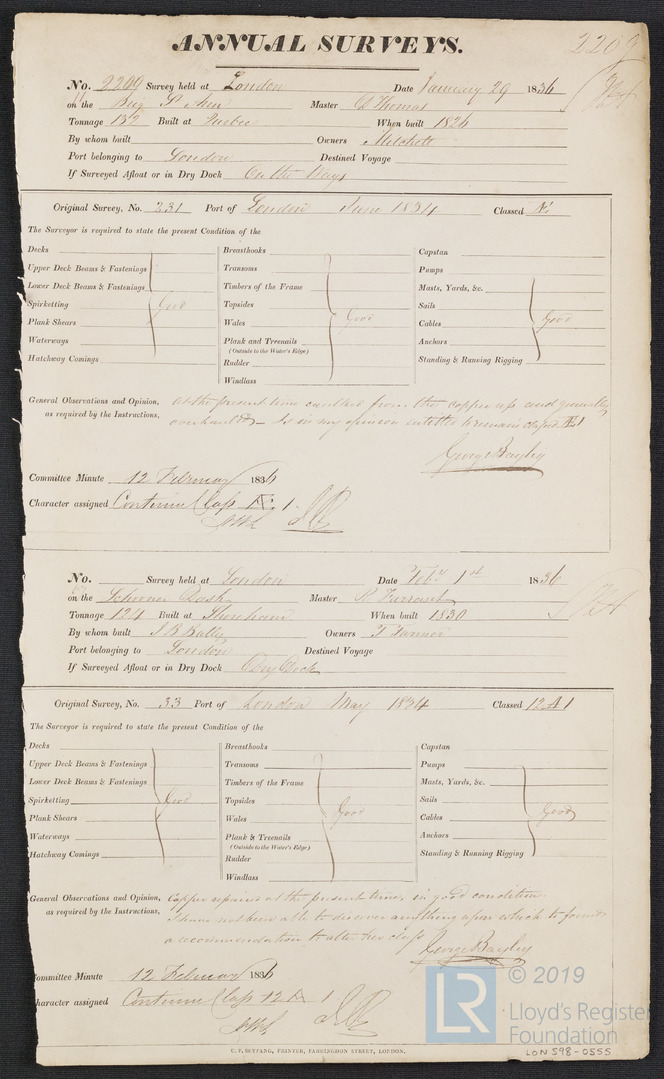 ANNUAL SURVEYS.
2209
No. 2209 Survey held at London Date January 29 1836
on the Brig Master Thomas
Tonnage 132 Built at Quebec When built 1826
By whom built Owners Mitchell
Port belonging to London Destined Voyage
If Surveyed Afloat or in Dry Dock On the Ways
Original Survey, No. 231 Port of London June 1834 Classed Æ1
The Surveyor is required to state the present Condition of the
Decks Breasthooks Capstan
Upper Deck Beams & Fastenings Transoms Pumps
Lower Deck Beams & Fastenings Timbers of the Frame Masts, Yards, &c.
Spirketting Good Topsides Sails
Plank Shears Wales Good Cables Good
Waterways Plank and Treenails Anchors
(Outside to the Water's Edge)
Hatchway Comings Rudder Standing & Running Rigging
Windlass
General Observations and Opinion, At the present time caulked from the copper up and generally
as required by the Instructions, overhauled - Is in my opinion entitled to remain classed Æ1
George Bayley
Committee Minute 12 February 1836
Character assigned Continue Class Æ 1
No. Survey held at London Date Feby 1st 1836
on the Schooner Dash Master R
Tonnage 124 Built at Shoreham When built 1830
By whom built J B Balley Owners T
Port belonging to London Destined Voyage
If Surveyed Afloat or in Dry Dock Dry Dock
Original Survey, No. 33 Port of London May 1834 Classed 12 A 1
The Surveyor is required to state the present Condition of the
Decks Breasthooks Capstan
Upper Deck Beams & Fastenings Transoms Pumps
Lower Deck Beams & Fastenings Timbers of the Frame Masts, Yards, &c.
Spirketting Good Topsides Sails
Plank Shears Wales Good Cables Good
Waterways Plank & Treenails Anchors
(Outside to the Water's Edge)
Hatchway Comings Rudder Standing & Running Rigging
Windlass
General Observations and Opinion, Copper repaired at the present time, in good condition.
as required by the Instructions, I have not been able to discover anything upon which to found
a recommendation to alter her class George Bayley
Committee Minute 12 February 1836
Character assigned Continue Class 12 A 1
C. F. SEYFANG, PRINTER, FARRINGDON STREET, LONDON.
LR © 2019
Lloyd's Register
Foundation
LON 598-0555